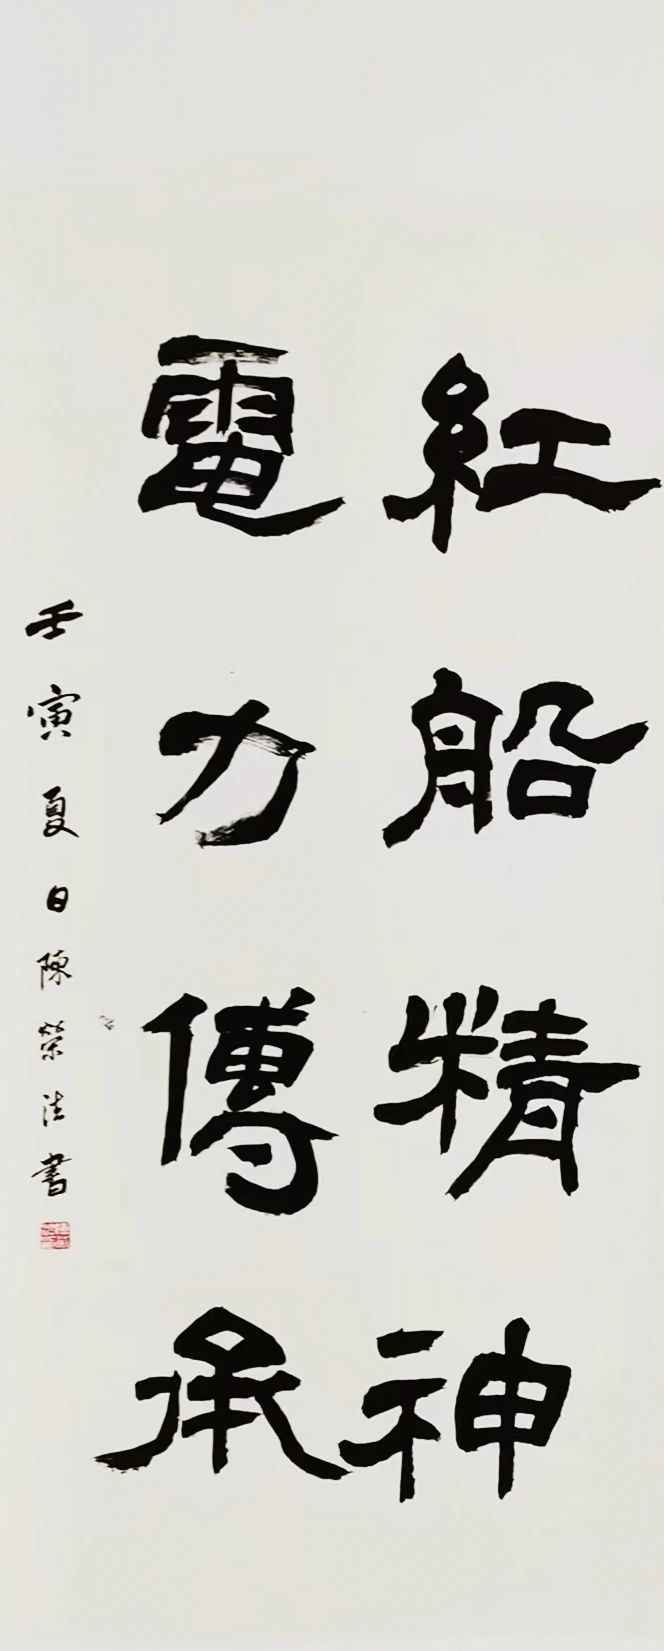 紅船精神
電力傳承
壬寅夏日陳榮法書